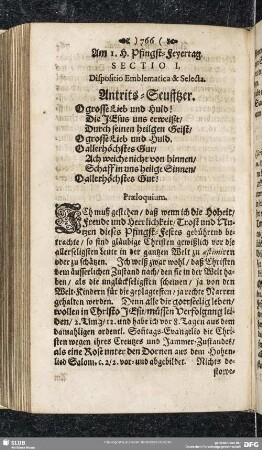 ) 766 (
Am 1. H. Pfingst-Feyertag
SECTIO I.
Dispositio Emblematica & Selecta.
Antrits-Seufftzer.
O grosse Lieb und Huld!
Die JEsus uns erweist/
Durch seinen heilgen Geist/
O grosse Lieb und Huld.
O allerhöchstes Gut/
Ach weiche nicht von hinnen/
Schaff in uns heilge Sinnen/
O allerhöchstes Gut!
Præloquium.
ICh muß gestehen/ daß wenn ich die Hoheit/
Freude und Herrlichkeit/ Trost und Nu-
tzen dieses Pfingst-Festes gebührend be-
trachte/ so sind gläubige Christen gewißlich vor die
allerseligsten Leute in der gantzen Welt zu æstimiren
oder zu schätzen. Ich weiß zwar wohl/ daß Christen
dem äusserlichen Zustand nach/ den sie in der Welt ha-
ben/ als die unglückseligsten scheinen/ ja von den
Welt-Kindern für die geplagtesten/ ja rechte Narren
gehalten werden. Denn alle die gottseelig leben/
wollen in Christo JEsu/ müssen Verfolgung lei-
den/ 2. Tim. 3/12. und habe ich vor 8. Tagen aus dem
damahligen ordentl. Sontags-Evangelio die Chri-
sten wegen ihres Creutzes und Jammer-Zustandes/
als eine Rose unter den Dornen aus dem Hohen-
lied Salom. c. 2/2. vor- und abgebildet. Nichts de-
stowe-
SLUB
DFG